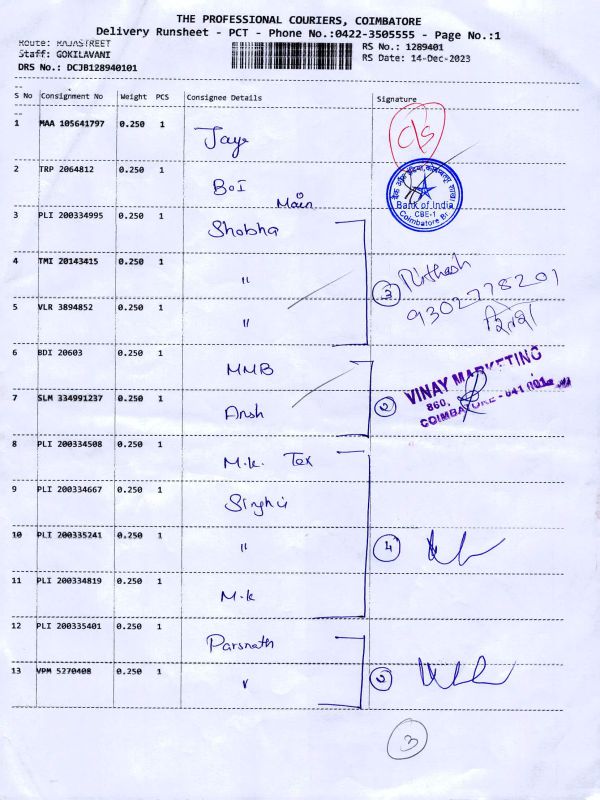 THE PROFESSIONAL COURIERS, COIMBATORE
Delivery Runsheet - PCT - Phone No.:0422-3505555 - Page No.:1
Route: RAJASTREET
Staff: GOKILAVANI
RS No.: 1289401
DRS No.: DCJB128940101
RS Date: 14-Dec-2023
S No Consignment No Weight PCS Consignee Details Signature
1 MAA 105641797 0.250 1 Jaya c/s
2 TRP 2064812 0.250 1 BOI Main
Bank of India
CBE-1
Coimbatore Br
3 PLI 200334995 0.250 1 Shobha
4 TMI 20143415 0.250 1 " 3 Rithesh
9302778201
5 VLR 3894852 0.250 1 "
6 BDI 20603 0.250 1 MMB
VINAY MARKETING
7 SLM 334991237 0.250 1 Ansh 2
860,
COIMBATORE - 641 001
8 PLI 200334508 0.250 1 M.K. Tex
9 PLI 200334667 0.250 1 Singhvi
10 PLI 200335241 0.250 1 " 4
11 PLI 200334819 0.250 1 M.K
12 PLI 200335401 0.250 1 Parsnath
13 VPM 5270408 0.250 1 " 2
3